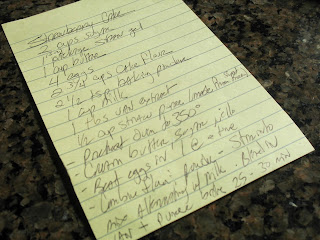 Strawberry Cake
2 cups sugar
1 package straw gel
1 cup butter
4 eggs
2 3/4 cups cake flour
2 1/2 tsp baking powder
1 cup milk
1 tbs van extract
1/2 cup straw puree (made from
Preheat oven to 350°
Cream butter sugar
- Beat eggs in 1 @ a time
- Combine flour powder -
mix alternating w/ milk. Blend in
van + puree bake 25-30 min